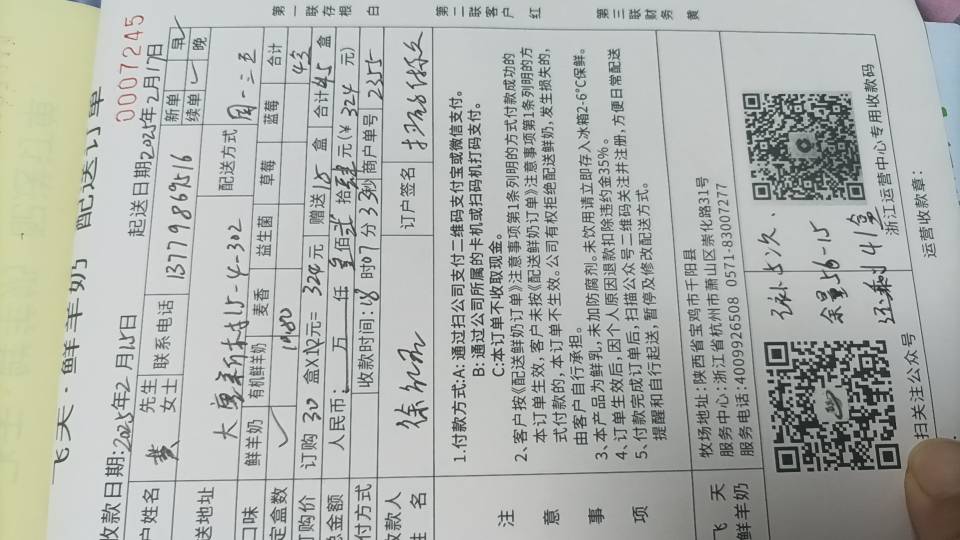 第一联 存根 白
第二联 客户 红
第三联 财务 黄
飞天·鲜羊奶 配送订单
0007245
收款日期:2025年2月15日 起送日期2025年2月17日
户姓名 黄 先生 女士 联系电话 137779869516 新单 续单 ✓ 早 晚
送地址 15-4-302 配送方式 周一三五
口味 鲜羊奶 有机鲜羊奶 麦香 益生菌 草莓 蓝莓 合计
定盒数 ✓
订购价 订购30盒 = 324元 赠送15盒 合计45盒
总金额 人民币: 万 仟 叁佰贰拾肆元(¥324元)
付方式 收款时间:18时07分33秒 商户单号 2355
收款人姓名 订户签名
注意事项
1.付款方式:A: 通过扫公司支付二维码支付宝或微信支付。
B: 通过公司所属的卡机或扫码机打码支付。
C:本订单不收取现金。
2、客户按《配送鲜奶订单》注意事项第1条列明的方式付款成功的
本订单生效,客户未按《配送鲜奶订单》注意事项第1条列明的方
式付款的,本订单不生效。公司有权拒绝配送鲜奶,发生损失的,
由客户自行承担。
3、本产品为鲜乳,未加防腐剂。未饮用请立即存入冰箱2-6°C保鲜。
4、订单生效后,因个人原因退款扣除违约金35%。
5、付款完成订单后,扫描公众号二维码关注并注册,方便日常配送
提醒和自行起送,暂停及修改配送方式。
飞天
鲜羊奶
牧场地址:陕西省宝鸡市千阳县
服务中心:浙江省杭州市萧山区崇化路31号
服务电话:4009926508 0571-83007277
还补5次.
余量56-15
还剩41盒
扫关注公众号
浙江运营中心专用收款码
运营收款章: